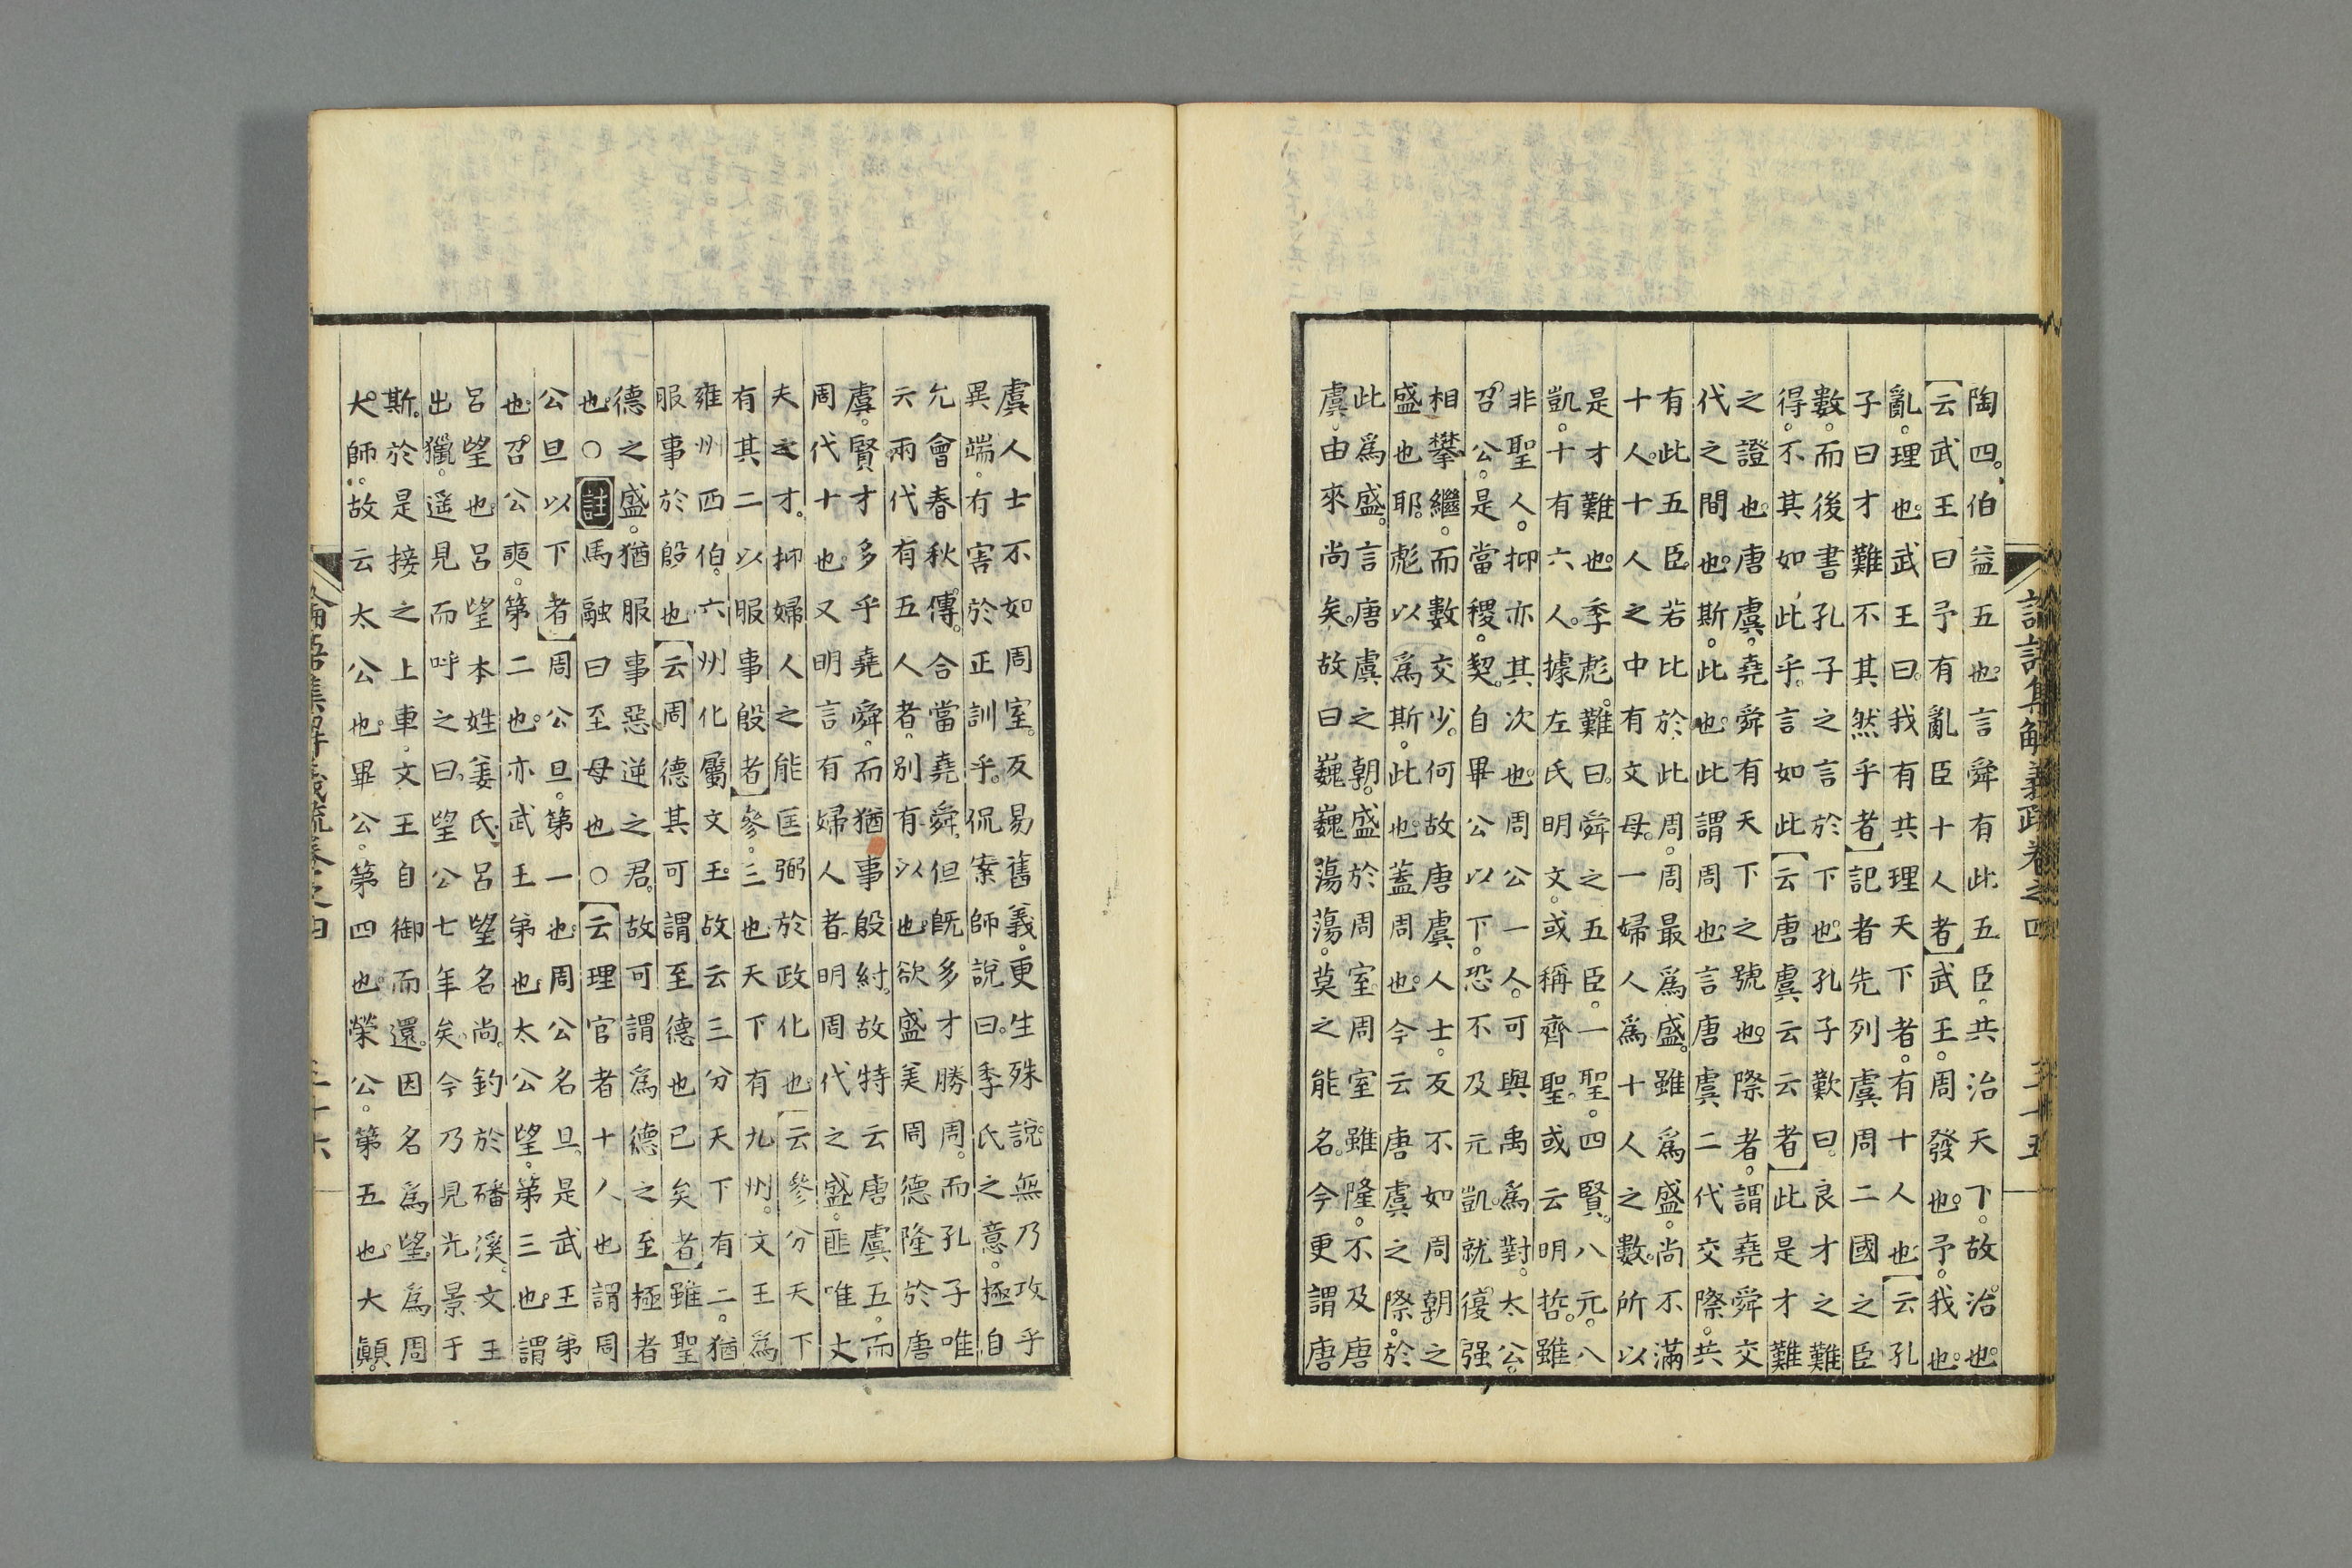 陶四。伯益五也。言舜有此五臣。共治天下。故治也。
【云武王曰予有亂臣十人者】武王。周發也。予。我也。
亂。理也。武王曰。我有共理天下者。有十人也【云孔
子曰才難不其然乎者】記者先列虞周二國之臣
數。而後書孔子之言於下也。孔子歎曰。良才之難
得。不其如此乎。言如此【云唐虞云云者】此是才難
之證也。唐虞。堯舜有天下之號也。際者。謂堯舜交
代之間也。斯。此也。此謂周也。言唐虞二代交際。共
有此五臣。若比於此周。周最爲盛。雖爲盛。尚不滿
十人。十人之中有文母。一婦人爲十人之數。所以
是才難也。季彪難曰。舜之五臣。一聖。四賢。八元。八
凱。十有六人。據左氏明文。或稱齊聖。或云明哲。雖
非聖人。抑亦其次也。周公一人。可與禹爲對。太公。
召公。是當稷。契。自畢公以下。恐不及元凱。就復强
相攀繼。而數交少。何故唐虞人士。反不如周朝之
盛也耶。彪以爲斯。此也。蓋周也。今云唐虞之際。於
此爲盛。言唐虞之朝。盛於周室。周室雖隆。不及唐
虞。由來尚矣。故曰巍巍蕩蕩。莫之能名。今更謂唐
論語集解義疏卷之四
虞人士不如周室。反易舊義。更生殊說。無乃攻乎
異端。有害於正訓乎。侃案師說曰。季氏之意。極自
允會春秋傳。合當堯舜。但既多才勝周。而孔子唯
云兩代有五人者。別有以也。欲盛美周德隆於唐
虞。賢才多乎堯舜。而猶事殷紂。故特云唐虞五。而
周代十也。又明言有婦人者。明周代之盛。匪唯丈
夫之才。抑婦人之能匡弼於政化也【云參分天下
有其二以服事殷者】參。三也。天下有九州。文王爲
雍州西伯。六州化屬文王。故云三分天下有二。猶
服事於殷也【云周德其可謂至德也已矣者】雖聖
德之盛。猶服事惡逆之君。故可謂爲德之至極者
也。○註馬融曰至母也○【云理官者十人也謂周
公旦以下者】周公旦。第一也。周公名旦。是武王弟
也。召公奭。第二也。亦武王弟也。太公望。第三也。謂
呂望也。呂望本姓姜氏。呂望名尚。釣於磻溪。文王
出獵。遥見而呼之曰。望公七年矣。今乃見光景于
斯。於是接之上車。文王自御而還。因名爲望。爲周
大師。故云太公也。畢公。第四也。榮公。第五也。大顛。
論語集解義疏卷之四